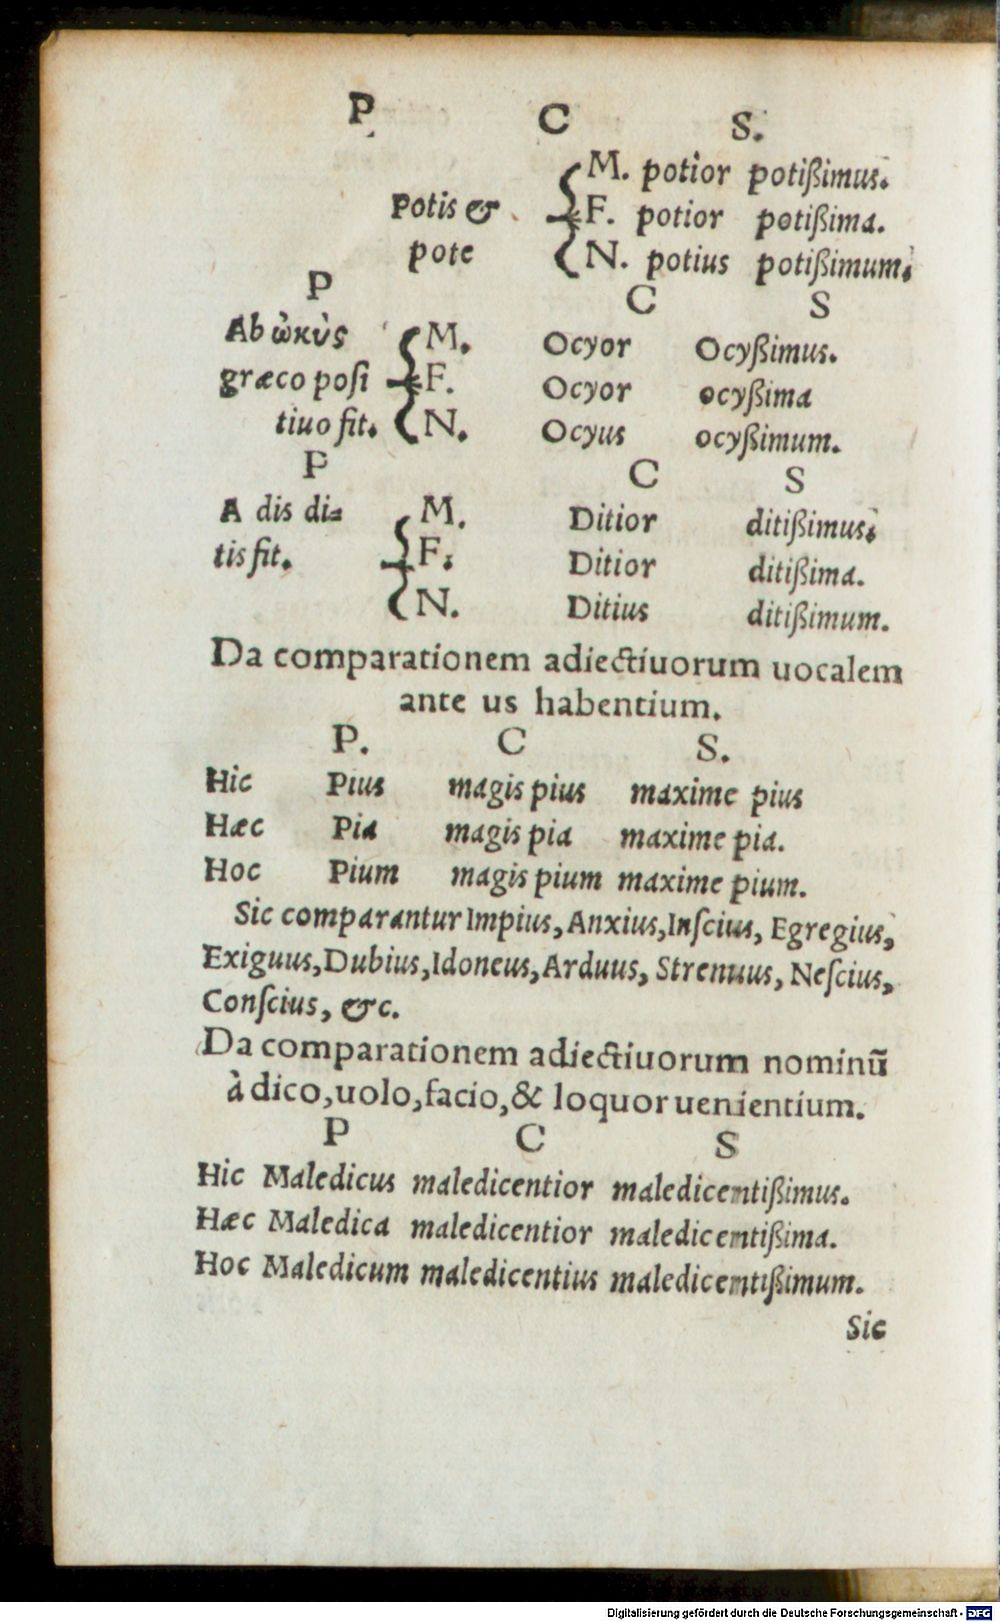 P C S.
M. potior potißimus.
Potis & F. potior potißima.
pote N. potius potißimum.
P C S
Ab ὠκὺς M. Ocyor Ocyßimus.
græco posi F. Ocyor ocyßima
tiuo fit. N. Ocyus ocyßimum.
P C S
A dis di= M. Ditior ditißimus.
tis fit. F. Ditior ditißima.
N. Ditius ditißimum.
Da comparationem adiectiuorum uocalem
ante us habentium.
P. C S.
Hic Pius magis pius maxime pius
Hæc Pia magis pia maxime pia.
Hoc Pium magis pium maxime pium.
Sic comparantur Impius, Anxius, Inſcius, Egregius,
Exiguus, Dubius, Idoneus, Arduus, Strenuus, Neſcius,
Conſcius, &c.
Da comparationem adiectiuorum nominū
à dico, uolo, facio, & loquor uenientium.
P C S
Hic Maledicus maledicentior maledicentißimus.
Hæc Maledica maledicentior maledicentißima.
Hoc Maledicum maledicentius maledicentißimum.
Sic
Digitalisierung gefördert durch die Deutsche Forschungsgemeinschaft - DFG